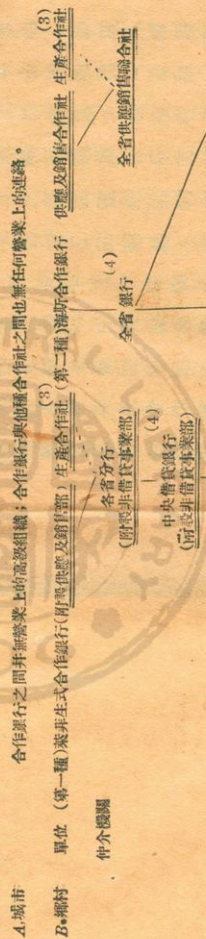 A.城市 合作銀行之間幷無營業上的高級組織；合作銀行與他種合作社之間也無任何營業上的連絡。
B.鄉村 單位 (第一種)萊菲生式合作銀行(附設供應及銷售部) 生產合作社(3) (第二種)海斯合作銀行 供應及銷售合作社 生產合作社(3)
仲介機關
各省分行
(附設非借貸事業部)
全省銀行(4)
全省供應銷售聯合社
(4)
中央借貸銀行
(附設非借貸事業部)